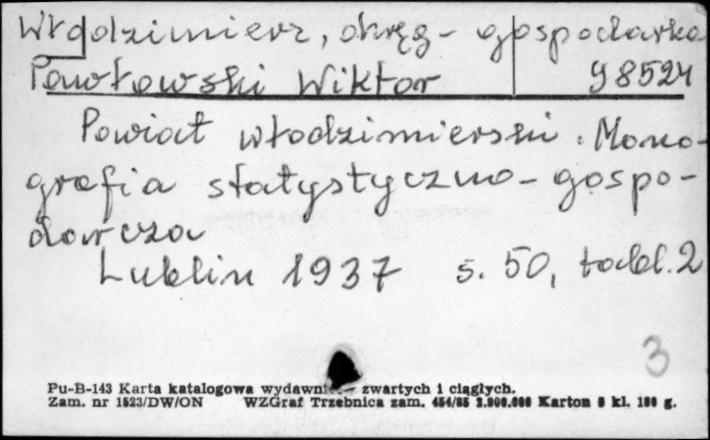 Włodzimierz, okręg - gospodarka
Pawłowski Wiktor 98524
Powiat włodzimierski. Mono-
grafia statystyczno-gospo-
darcza
Lublin 1937 s. 50, tabl. 2
3
Pu-B-143 Karta katalogowa wydawni zwartych i ciągłych.
Zam. nr 1523/DW/ON WZGraf Trzebnica zam. 454/85 2.000.000 Karton 8 kl. 180 g.